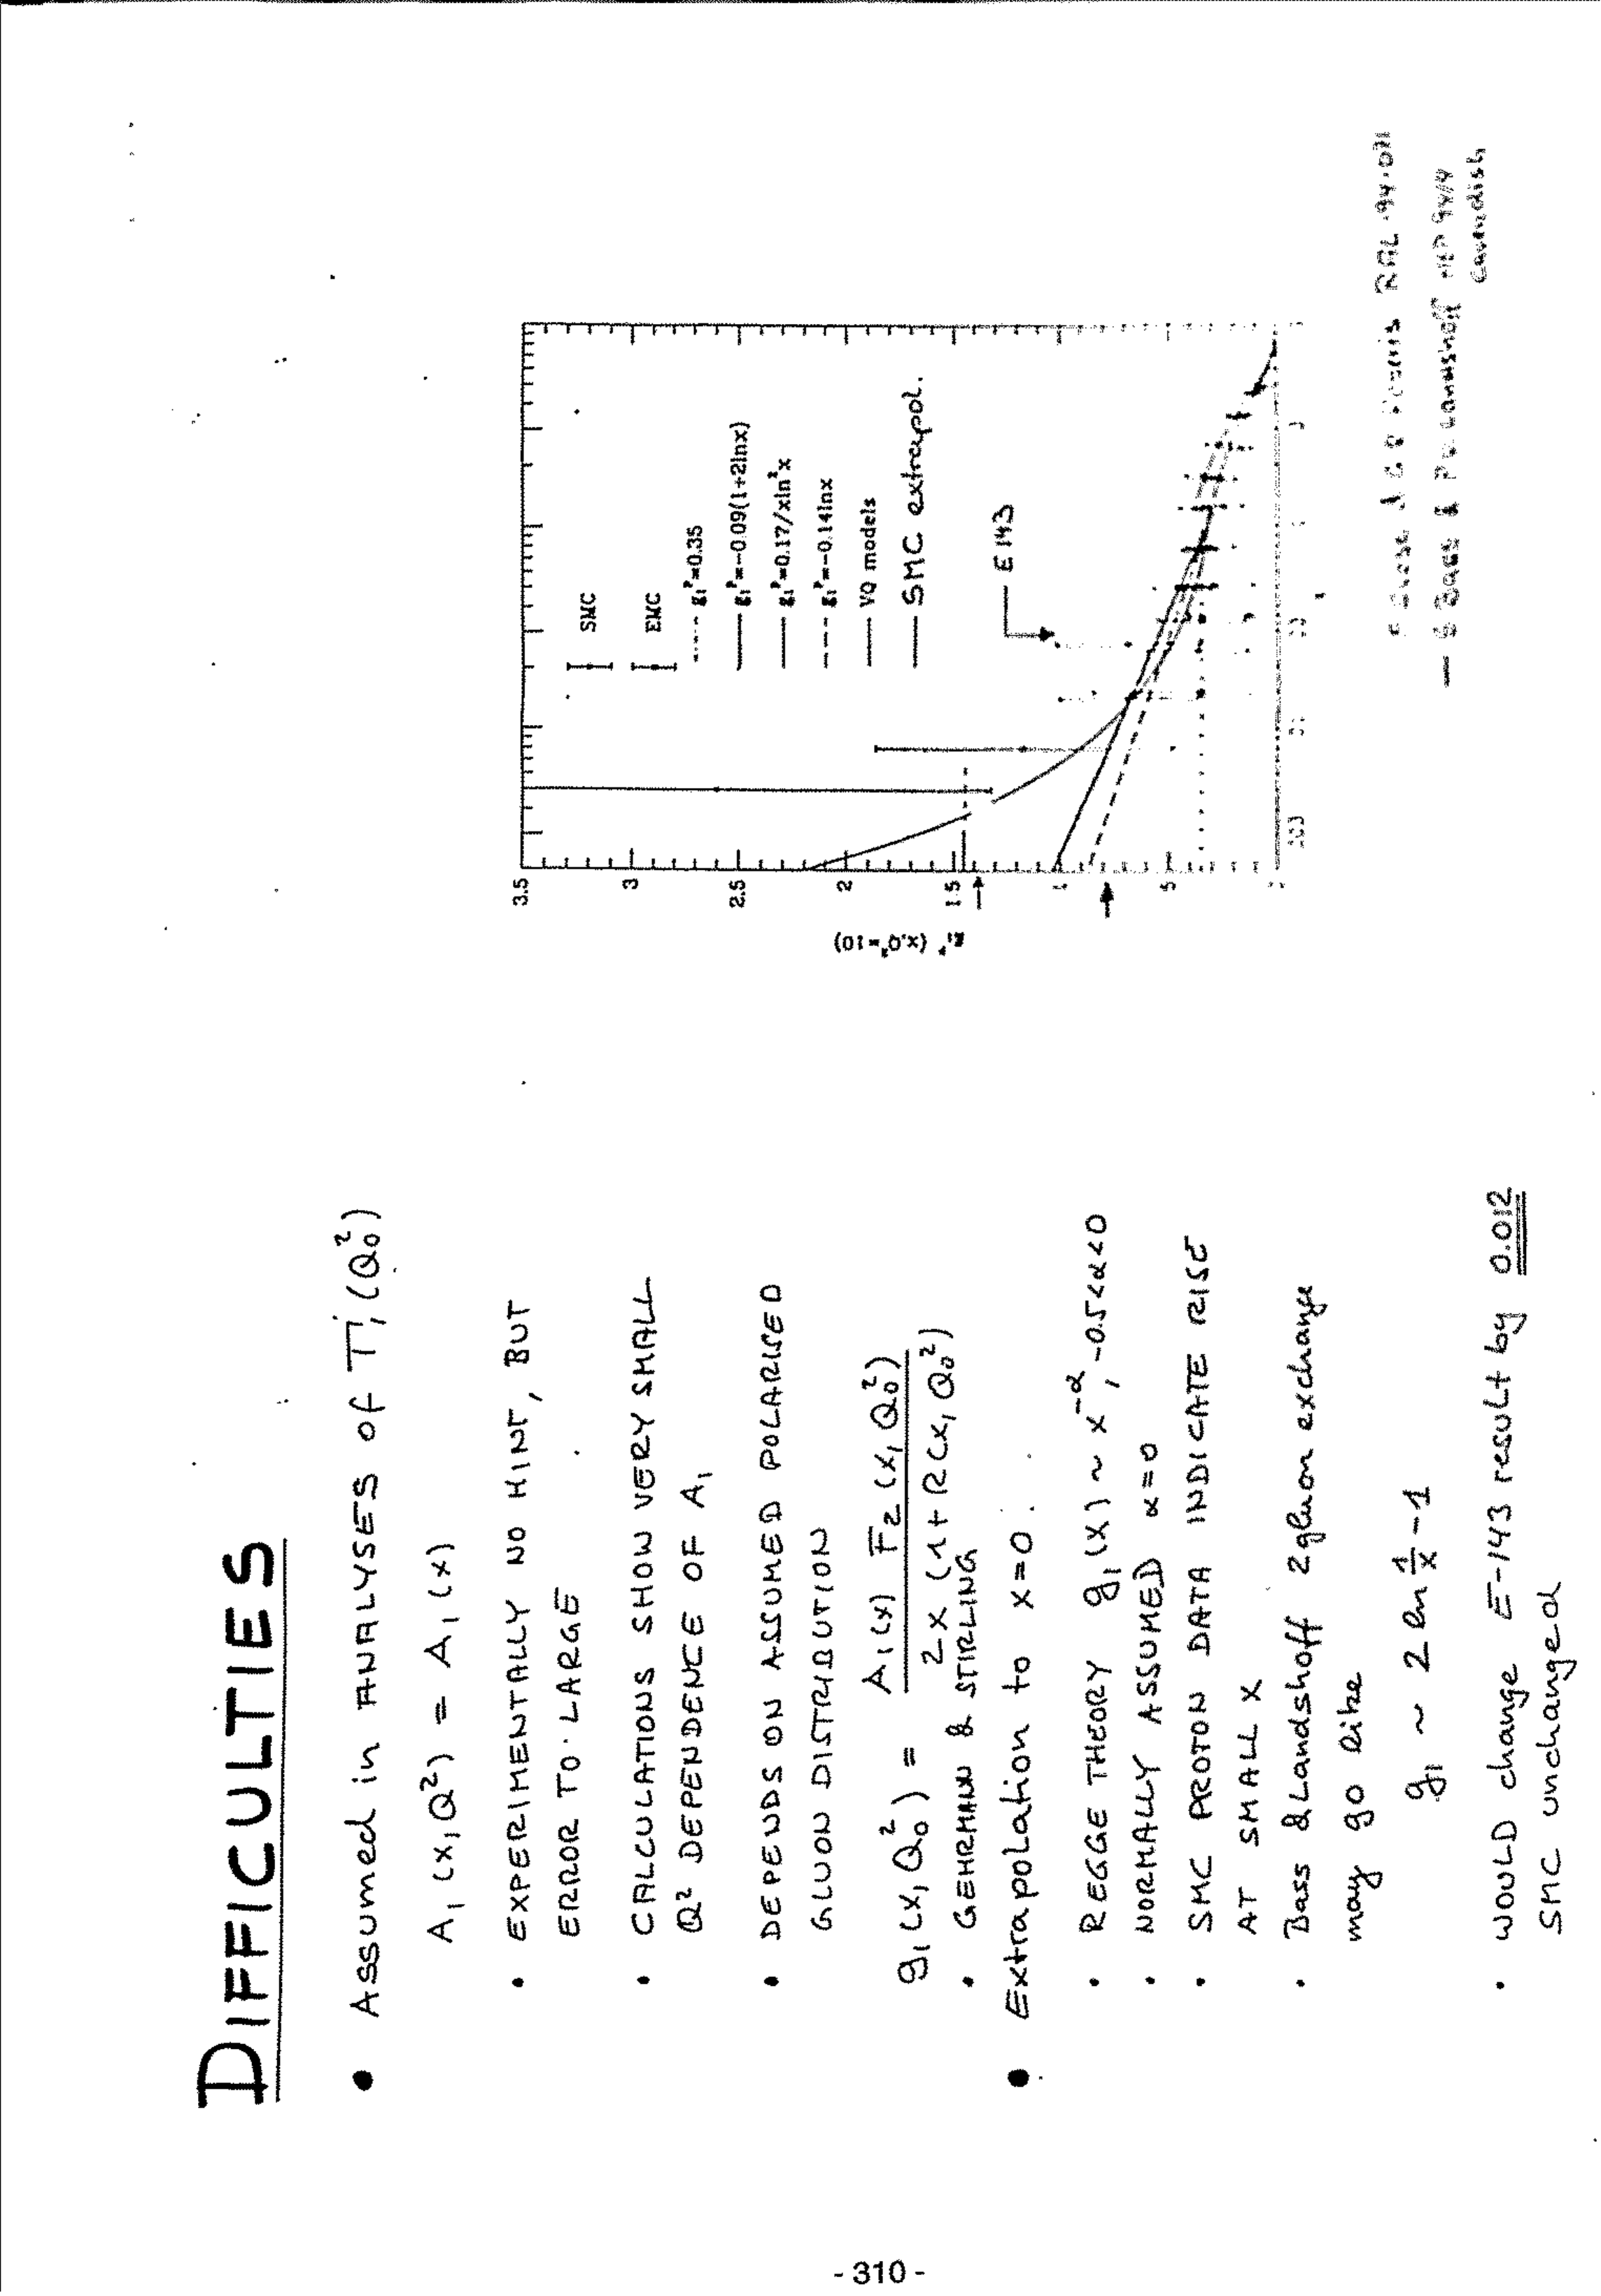 DIFFICULTIES
• Assumed in ANALYSES of Γ₁(Q₀²)
A₁(x,Q²) = A₁(x)
• EXPERIMENTALLY NO HINT, BUT
ERROR TO LARGE
• CALCULATIONS SHOW VERY SMALL
Q² DEPENDENCE OF A₁
• DEPENDS ON ASSUMED POLARISED
GLUON DISTRIBUTION
g₁(x,Q₀²) = A₁(x) F₂(x,Q₀²) / 2x(1+R(x,Q₀²))
• GEHRMANN & STIRLING
• Extrapolation to x=0
• REGGE THEORY g₁(x) ~ x^-α, -0.5<α<0
• NORMALLY ASSUMED α=0
• SMC PROTON DATA INDICATE RISE
AT SMALL X
• Bass & Landshoff 2gluon exchange
may go like
g₁ ~ 2 ln 1/x - 1
• WOULD change E-143 result by 0.012
SMC unchanged
3.5
3
2.5
2
1.5
1
.5
g₁ᵖ (x,Q²=10)
SMC
EMC
g₁ᵖ=0.35
g₁ᵖ=-0.09(1+2lnx)
g₁ᵖ=0.17/xln²x
g₁ᵖ=-0.14lnx
VQ models
SMC extrapol.
E143
RAL-94-071
— S Bass & Landshoff 94/4
Cavendish
- 310 -